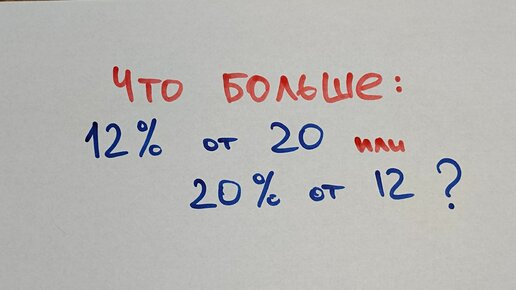 Что больше:
12% от 20 или
20% от 12?